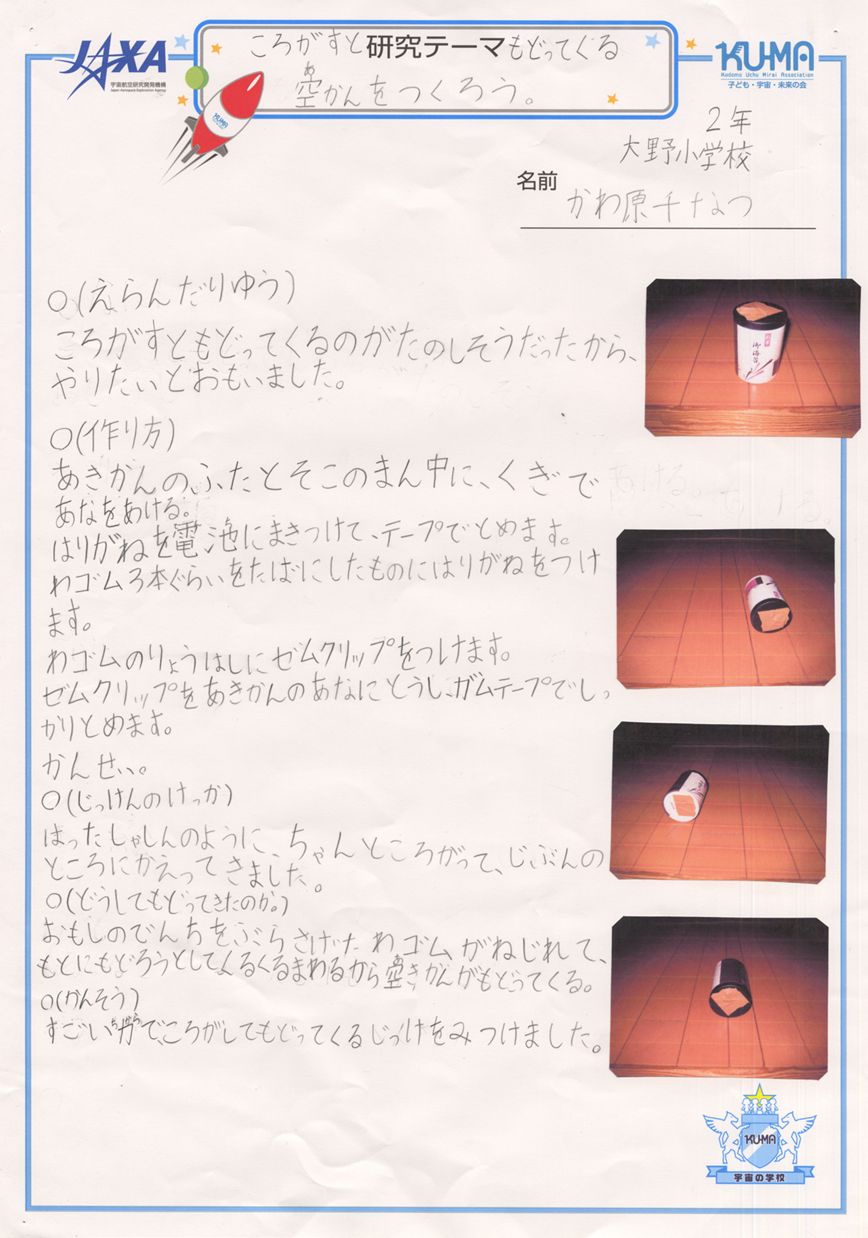 JAXA
宇宙航空研究開発機構
Japan Aerospace Exploration Agency
ころがすと研究テーマもどってくる
あ
空かんをつくろう。
KU-MA
Kodomo Uchu Mirai Association
子ども・宇宙・未来の会
KU-MA
2年
大野小学校
名前
かわ原千なつ
○(えらんだりゆう)
ころがすともどってくるのがたのしそうだったから、
やりたいとおもいました。
○(作り方)
あきかんのふたとそこのまん中に、くぎで
あなをあける。
はりがねを電池にまきつけて、テープでとめます。
わゴムろ本ぐらいをたばにしたものにはりがねをつけ
ます。
わゴムのりょうはしにゼムクリップをつけます。
ゼムクリップをあきかんのあなにとうし、ガムテープでしっ
かりとめます。
かんせい。
○(じっけんのけっか)
はったしゃしんのように、ちゃんところがって、じぶんの
ところにかえってきました。
○(どうしてもどってきたのか。)
おもしのでんちをぶらさげたわゴムがねじれて、
もとにもどろうとしてくるくるまわるから空きかんがもどってくる。
○(かんそう)
すごい力でころがしてもどってくるじっけをみつけました。
御海苔
KU-MA
宇宙の学校